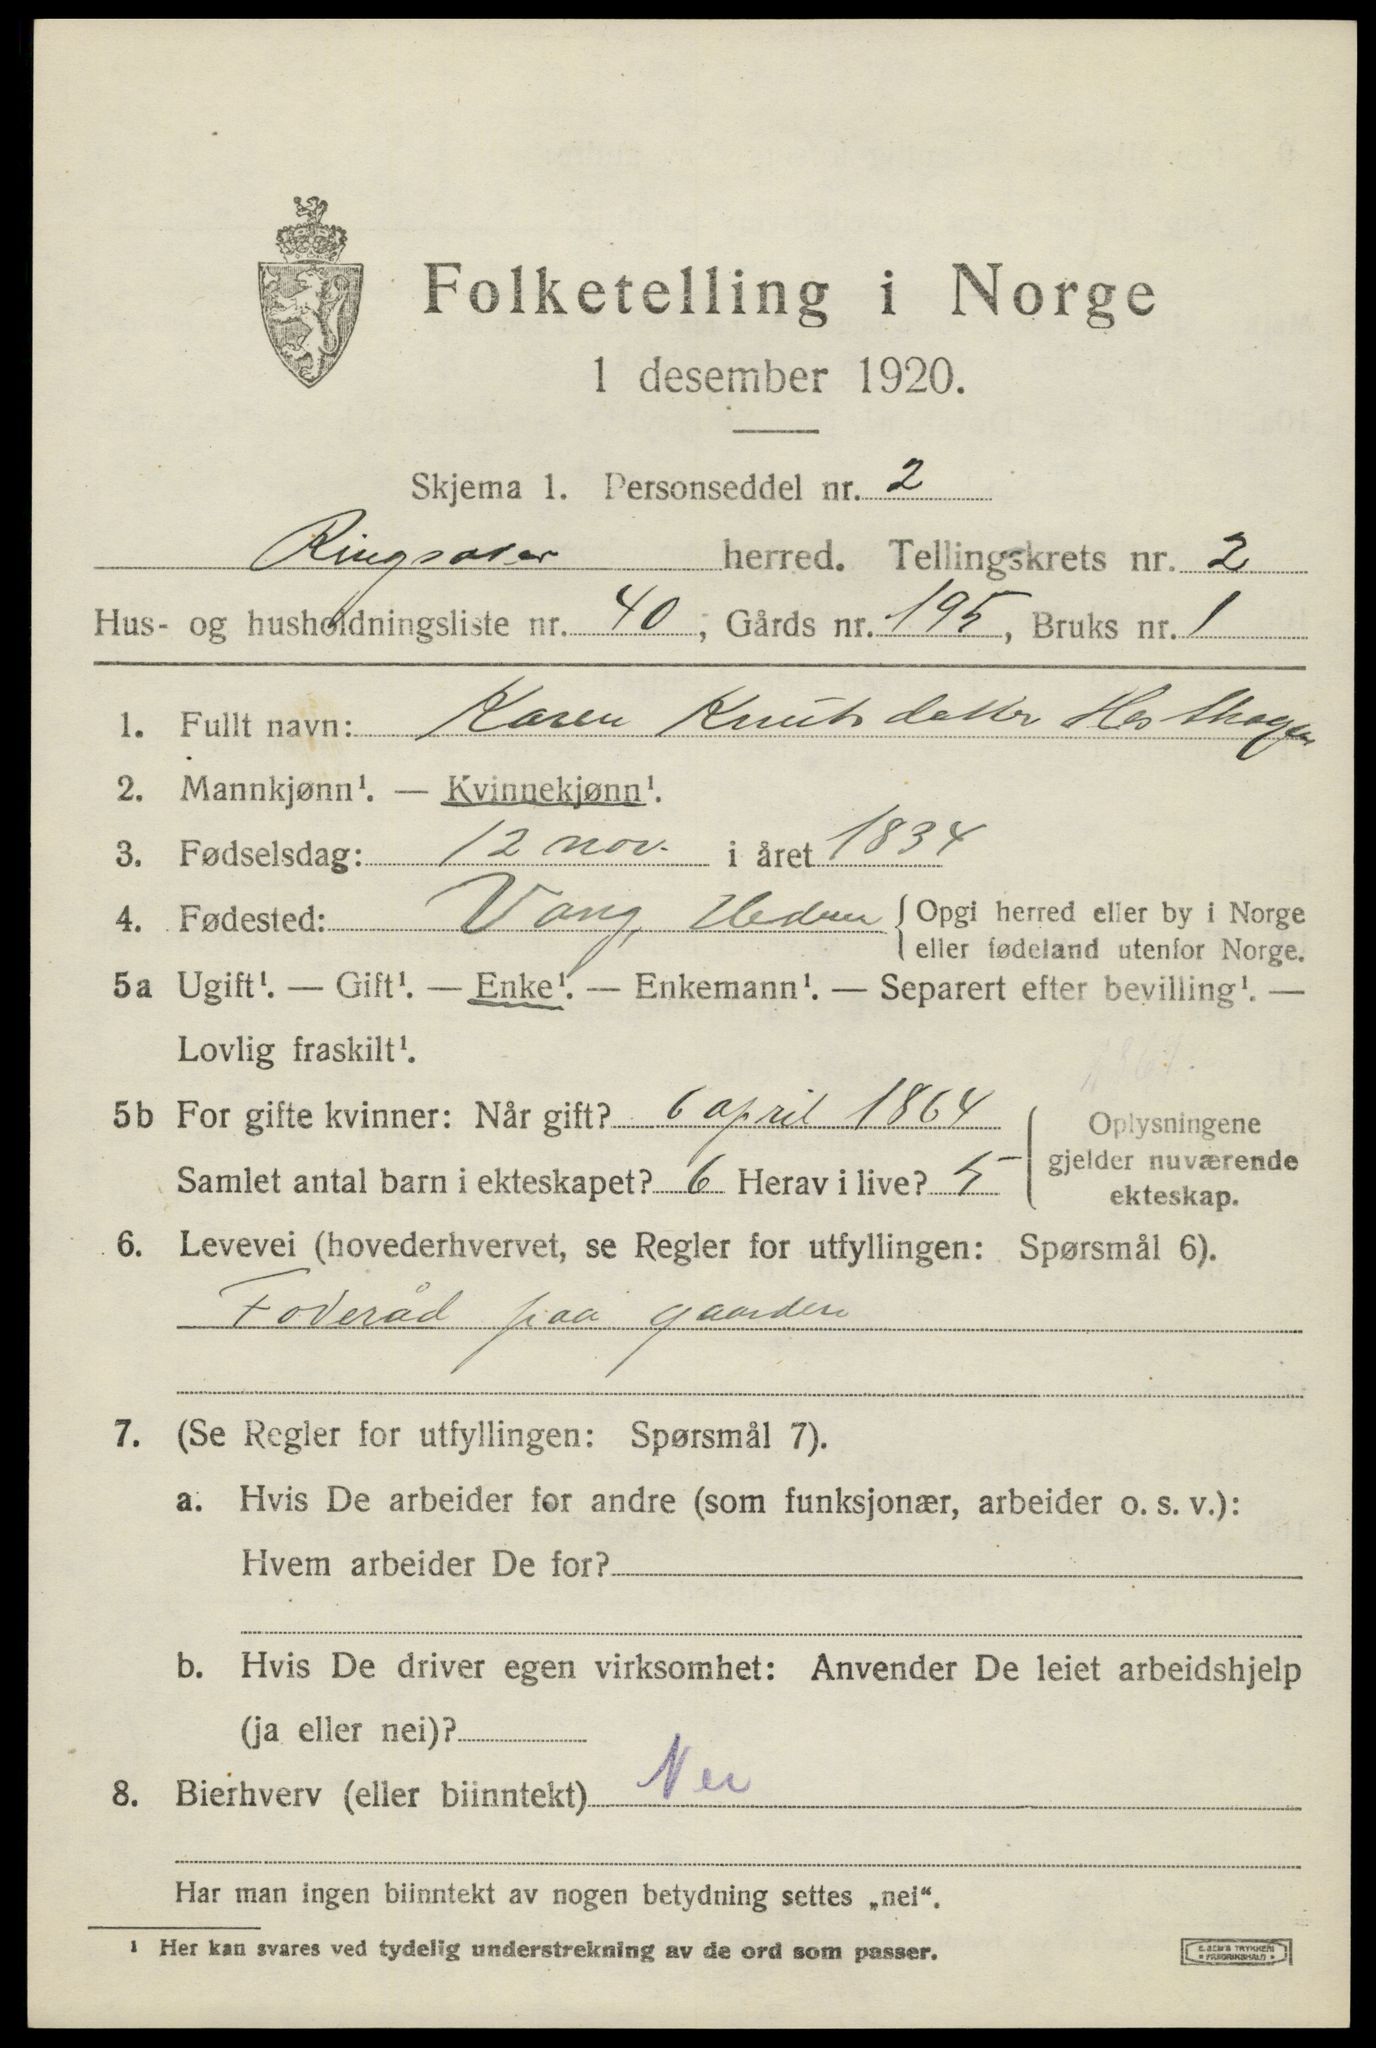 Folketelling i Norge
1 desember 1920.
Skjema 1. Personseddel nr. 2
Ringsaker herred. Tellingskrets nr. 2
Hus- og husholdningsliste nr. 40; Gårds nr. 195, Bruks nr. 1
1. Fullt navn: Karen Knutsdatter
2. Mannkjønn¹. — Kvinnekjønn¹.
3. Fødselsdag: 12 nov. i året 1834
4. Fødested: Vang, { Opgi herred eller by i Norge
eller fødeland utenfor Norge.
5a Ugift¹. — Gift¹. — Enke¹. — Enkemann¹. — Separert efter bevilling¹. —
Lovlig fraskilt¹.
5b For gifte kvinner: Når gift? 6 april 1864
Samlet antal barn i ekteskapet? 6 Herav i live? 5
Oplysningene
gjelder nuværende
ekteskap.
6. Levevei (hovederhvervet, se Regler for utfyllingen: Spørsmål 6).
Foderåd paa gaarden
7. (Se Regler for utfyllingen: Spørsmål 7).
a. Hvis De arbeider for andre (som funksjonær, arbeider o. s. v.):
Hvem arbeider De for?
b. Hvis De driver egen virksomhet: Anvender De leiet arbeidshjelp
(ja eller nei)?
8. Bierhverv (eller biinntekt) Nei
Har man ingen biinntekt av nogen betydning settes „nei“.
¹ Her kan svares ved tydelig understrekning av de ord som passer.
E. SEM'S TRYKKERI
FREDRIKSHALD